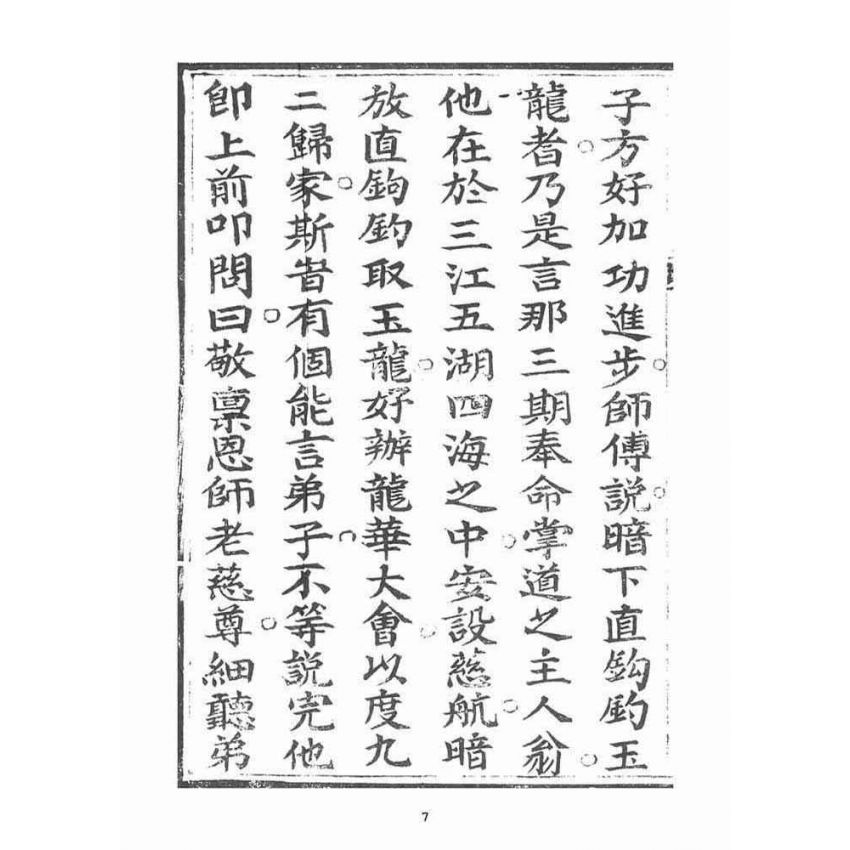 子方好加功進步師傅說暗下直鈎釣玉
龍者乃是言那三期奉命掌道之主人翁
他在於三江五湖四海之中安設慈航暗
放直鉤釣取玉龍好辦龍華大會以度九
二歸家斯時有個能言弟子不等說完他
卽上前叩問曰敬禀恩師老慈尊細聽弟
7